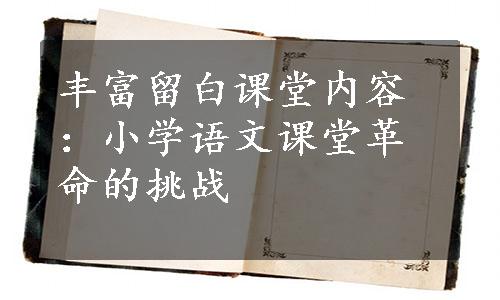 丰富留白课堂内容
：小学语文课堂革
命的挑战